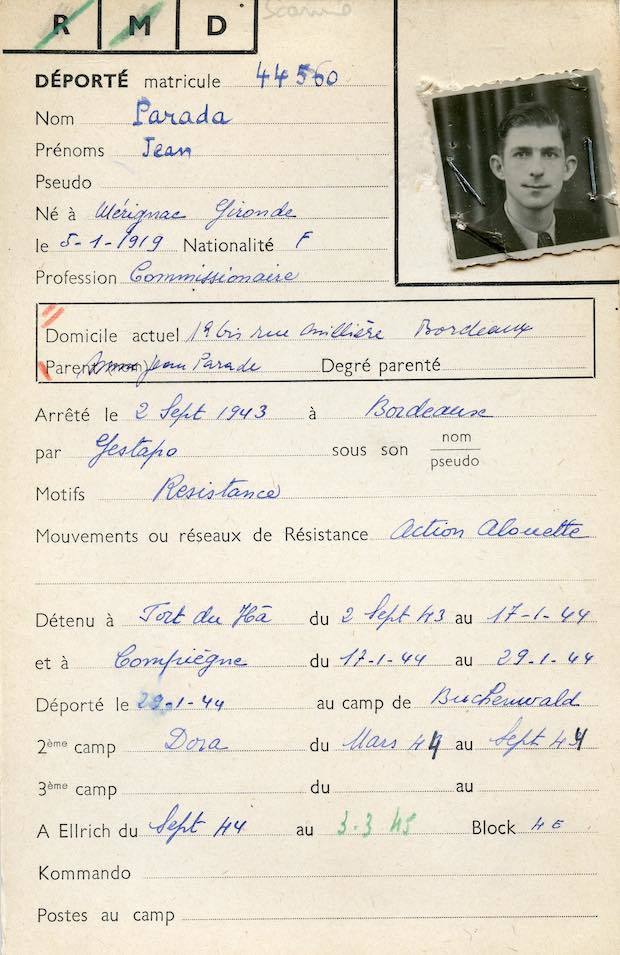 Scanné
R M D
DÉPORTÉ matricule 44560
Nom Parada
Prénoms Jean
Pseudo
Né à Mérignac Gironde
le 5-1-1919 Nationalité F
Profession Commissionaire
Domicile actuel 19 bis rue Bordeaux
Parent Jean Parade Degré parenté
Arrêté le 2 Sept 1943 à Bordeaux
par Gestapo sous son nom
pseudo
Motifs Resistance
Mouvements ou réseaux de Résistance Action Alouette
Détenu à Fort du Hâ du 2 Sept 43 au 17-1-44
et à Compiègne du 17-1-44 au 29.1.44
Déporté le 29-1-44 au camp de Buchenwald
2ème camp Dora du Mars 44 au Sept 44
3ème camp du au
A Ellrich du Sept 44 au 3.3 45 Block 4E
Kommando
Postes au camp